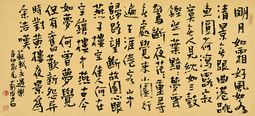 明月如霜好風如水
清景無限曲港跳魚
圓荷瀉露寂寞無
人見紞如三鼓鏗
然一葉黯黯夢雲
驚斷夜茫茫重尋無
處覺來小園行
遍天涯倦客山中
歸路望斷故園心眼
燕子樓空佳人何在
空鎖樓中燕古今
如夢何曾夢覺
但有舊歡新怨異
時對黃樓夜景為
余浩嘆